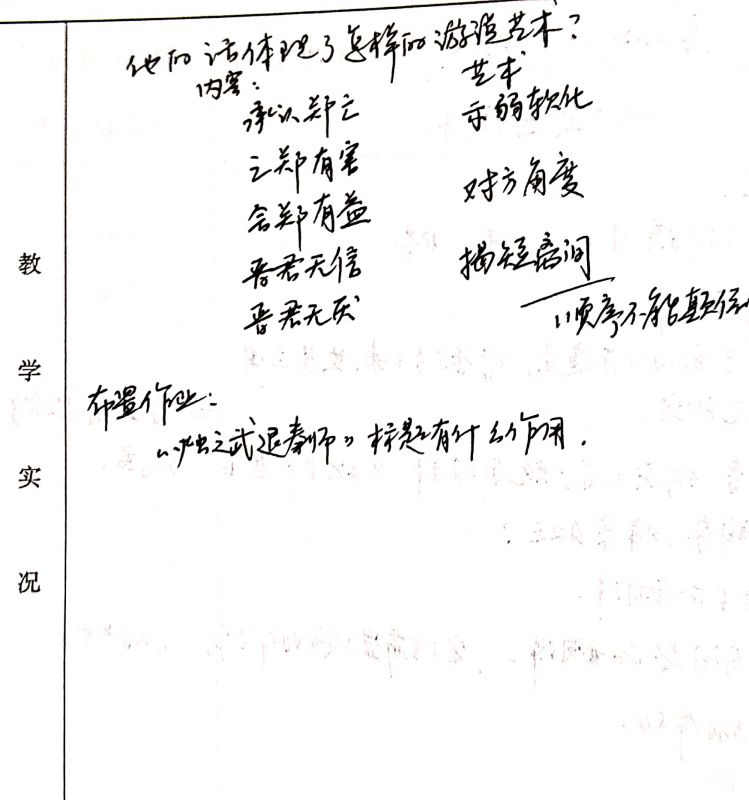 他的话体现了怎样的游说艺术?
内容: 艺术
承认郑亡 示弱软化
亡郑有害
对方角度
舍郑有益
晋君无信 揭短离间
晋君无厌 顺序不能颠倒
布置作业:
《烛之武退秦师》标题有什么作用.
教
学
实
况